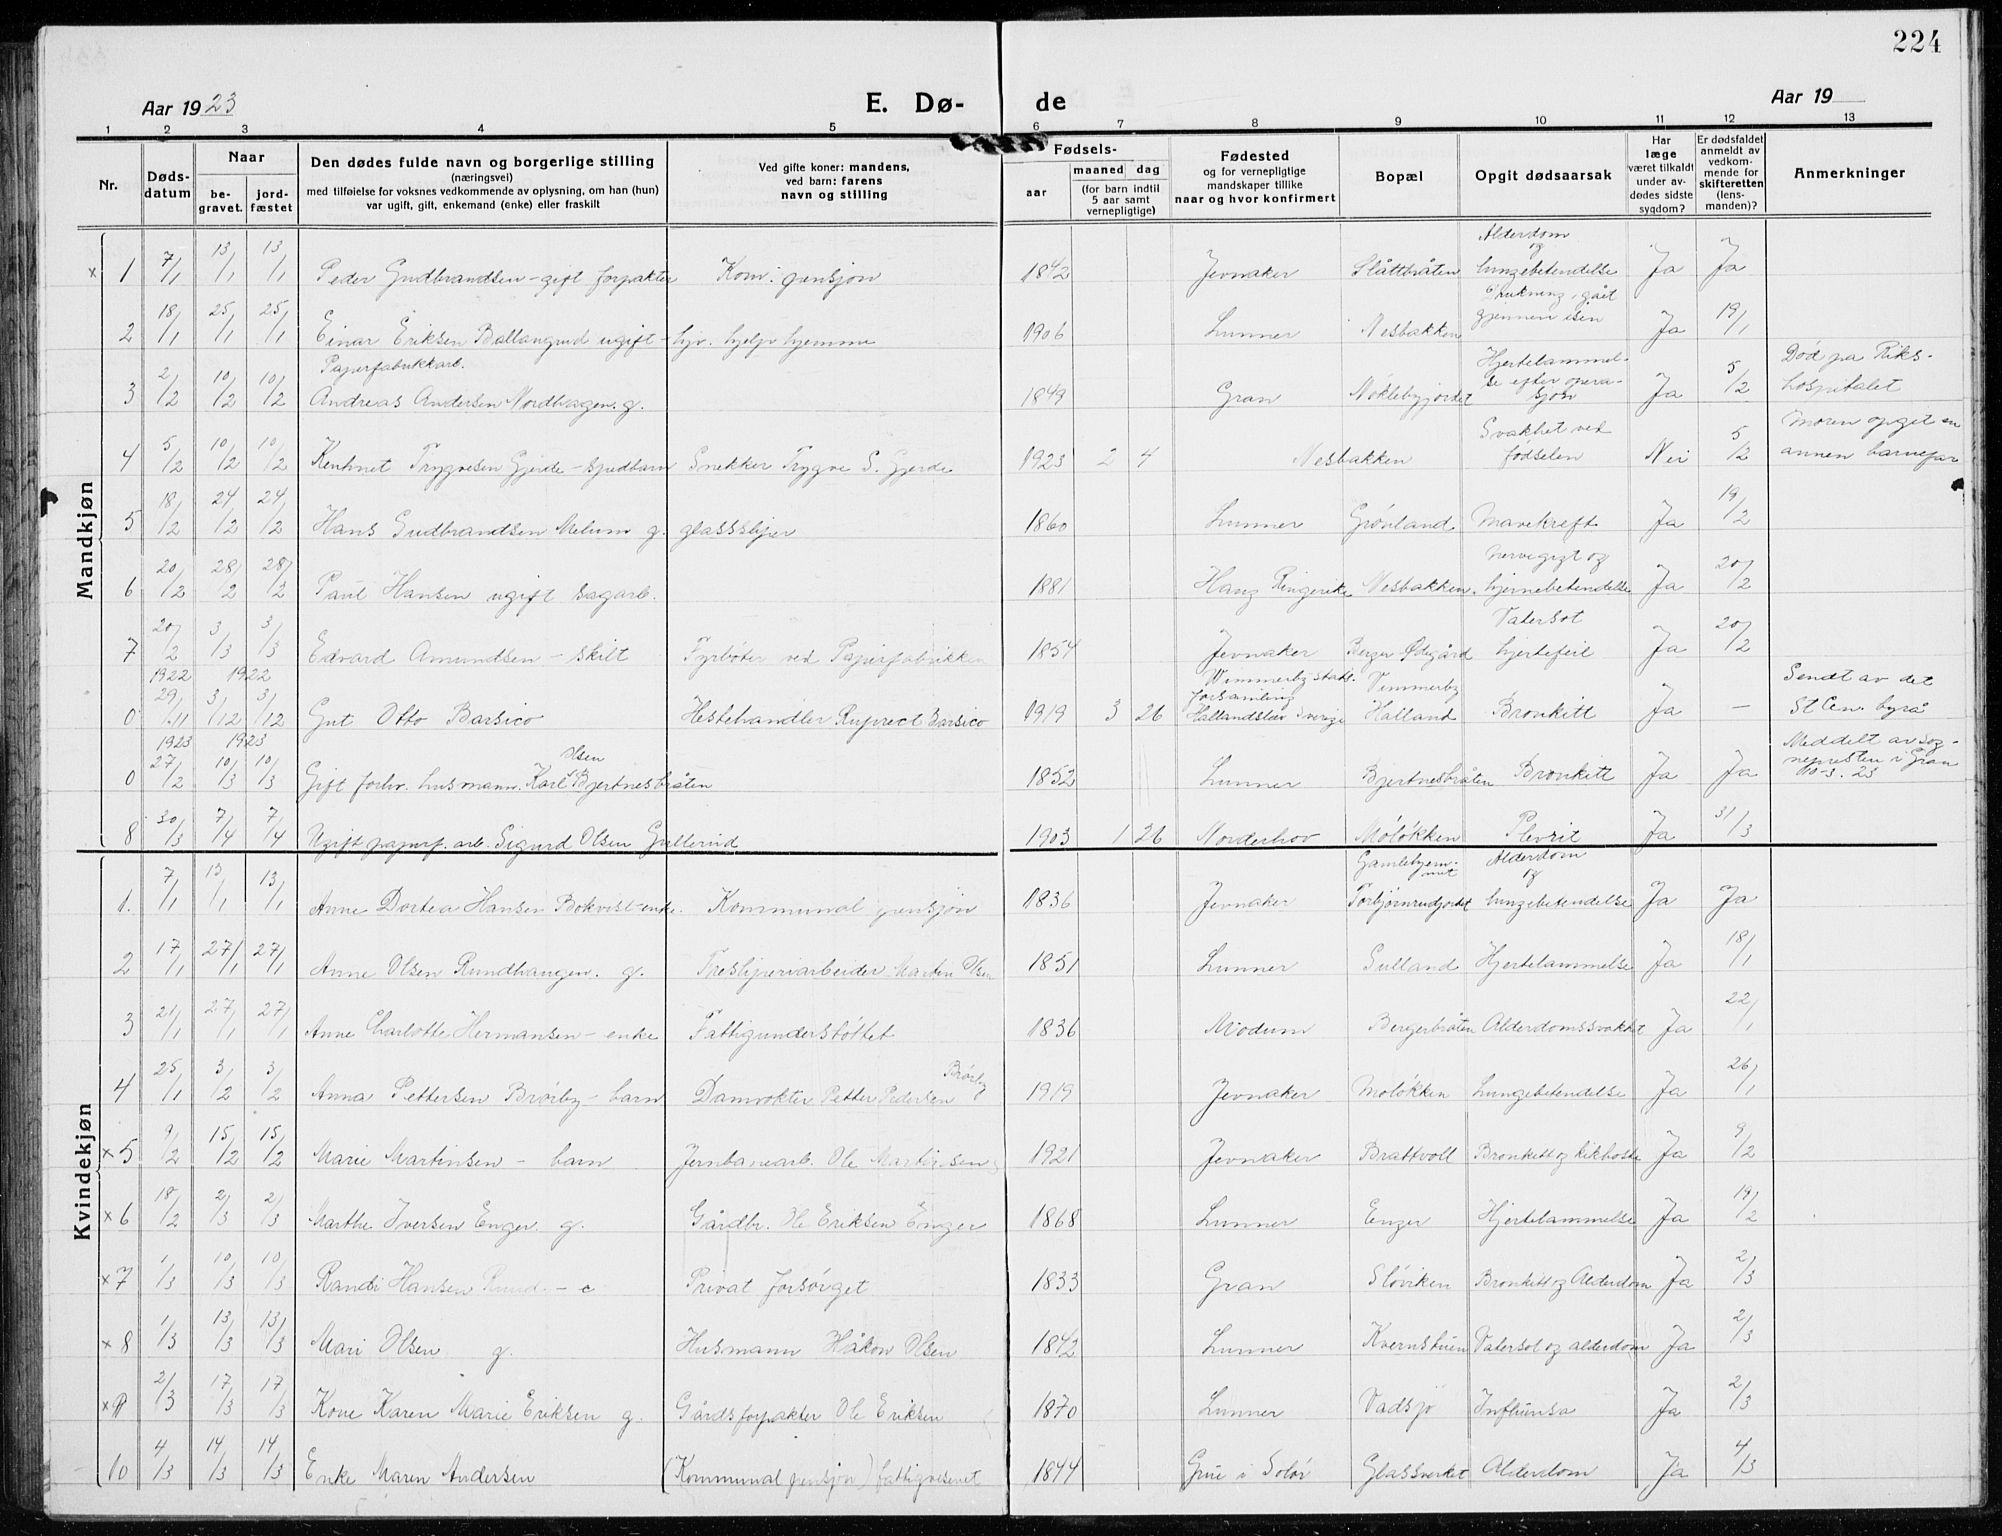 224
Aar 1923 E. Dø- de Aar 19
1 2 3 4 5 6 7 8 9 10 11 12 13
Nr. Døds-datum Naar be-gravet. jord-fæstet
Den dødes fulde navn og borgerlige stilling (næringsvei) med tilføielse for voksnes vedkommende av oplysning, om han (hun) var ugift, gift, enkemand (enke) eller fraskilt
Ved gifte koner: mandens, ved barn: farens navn og stilling
Fødsels- aar maaned dag (for barn indtil 5 aar samt vernepligtige)
Fødested og for vernepligtige mandskaper tillike naar og hvor konfirmert
Bopæl
Opgit dødsaarsak
Har læge været tilkaldt under av-dødes sidste sygdom?
Er dødsfaldet anmeldt av vedkom-mende for skifteretten (lens-manden)?
Anmerkninger
Mandkjøn
x 1 7/1 13/1 13/1 Peder Gudbrandsen - gift forpakter Kom. pensjon 1842 Jevnaker Slåttbråten Alderdom og lungebetendelse Ja Ja
2 18/1 25/1 25/1 Einar Eriksen Ballangrud ugift - hjv. hjelp hjemme 1906 Lunner Nesbakken Drukning, gåit gjennem isen Ja 19/1
3 2/2 10/2 10/2 Paperfabrikkarb. Andreas Andersen Nordhagen. g. 1849 Gran Nøklebyjordet Hjertelammelse efter operasjon Ja 5/2 Død på Rikshospitalet
4 5/2 10/2 10/2 Trygvesen Gjerde - spedbarn Snekker Trygve S. Gjerde 1923 2 4 Nesbakken Svakhet ved fødselen Nei 5/2 Moren opget en annen barnefar
5 18/2 24/2 24/2 Hans Gudbrandsen Melum g. glassliper 1860 Lunner Grønland Mavekreft Ja 19/2
6 20/2 28/2 28/2 Paul Hansen ugift sagarb. 1881 Haug Ringerike Nesbakken. Nervegigt og hjernebetendelse Ja 20/2
7 20/2 3/3 3/3 Edvard Amundsen - skilt Fyrbøter ved Papirfabrikken 1854 Jevnaker Berger Ødegård Vatersot hjertefeil Ja 20/2
1922 1922
0 29/11 3/12 3/12 Gut Otto Barsico Hestehandler Ruprect Barsico 1919 3 26 Wimmerby stads. forsamling Hallandslæn Sverige Vimmerby Halland Bronkitt Ja - Sendt av det St. Cen. byrå
1923 1923
0 27/2 10/3 10/3 Gift forhv. husmann. Karl Olsen Bjertnesbråten 1852 Lunner Bjertnesbråten Bronkitt Ja Ja Meddelt av sognepresten i Gran 10-3. 23
8 30/3 7/4 7/4 Ugift papirf. arb. Sigurd Olsen Gullerud 1903 1 26 Norderhov Moløkken Plevrit Ja 31/3
Kvindekjøn
1. 7/1 13/1 13/1 Anne Dortea Hansen Bokvist - enke. Kommunal pensjon 1836 Jevnaker Gamlehjemmet Torbjørnrudjordet Alderdom og lungebetendelse Ja Ja
2 17/1 27/1 27/1 Anne Olsen Rundhaugen. g. Tresliperiarbeider Martin Olsen 1851 Lunner Sulland Hjertelammelse Ja 18/1
3 21/1 27/1 27/1 Anne Charlotte Hermansen - enke Fattigunderstøttet 1836 Modum Bergerbråten Alderdomssvakhet Ja 22/1
4 25/1 3/2 3/2 Anna Pettersen Brørby - barn Damvokter Petter Pedersen Brørby 1919 Jevnaker Moløkken Lungebetendelse Ja 26/1
x 5 9/2 15/2 15/2 Marie Martinsen - barn Jernbanearb. Ole Martinsen 1921 Jevnaker Brattvoll Bronkitt og kikhoste Ja 9/2
x 6 18/2 2/3 2/3 Marthe Iversen Enger. g. Gårdbr. Ole Eriksen Enger 1868 Lunner Enger Hjertelammelse Ja 19/2
x 7 1/3 10/3 10/3 Randi Hansen Ruud - e Privat forsørget 1833 Gran Sløviken Bronkitt og Alderdom Ja 2/3
x 8 1/3 13/3 13/3 Mari Olsen g. Husmann Håkon Olsen 1842 Lunner Kvernstuen Vatersot og alderdom Ja 2/3
x 9 2/3 17/3 17/3 Kone Karen Marie Eriksen g. Gårdsforpakter Ole Eriksen 1870 Lunner Vadsjø Influensa Ja 2/3
10 4/3 14/3 14/3 Enke Maren Andersen (Kommunal pensjon) fattigvesenet 1844 Grue i Solør Glassverket Alderdom Ja 4/3